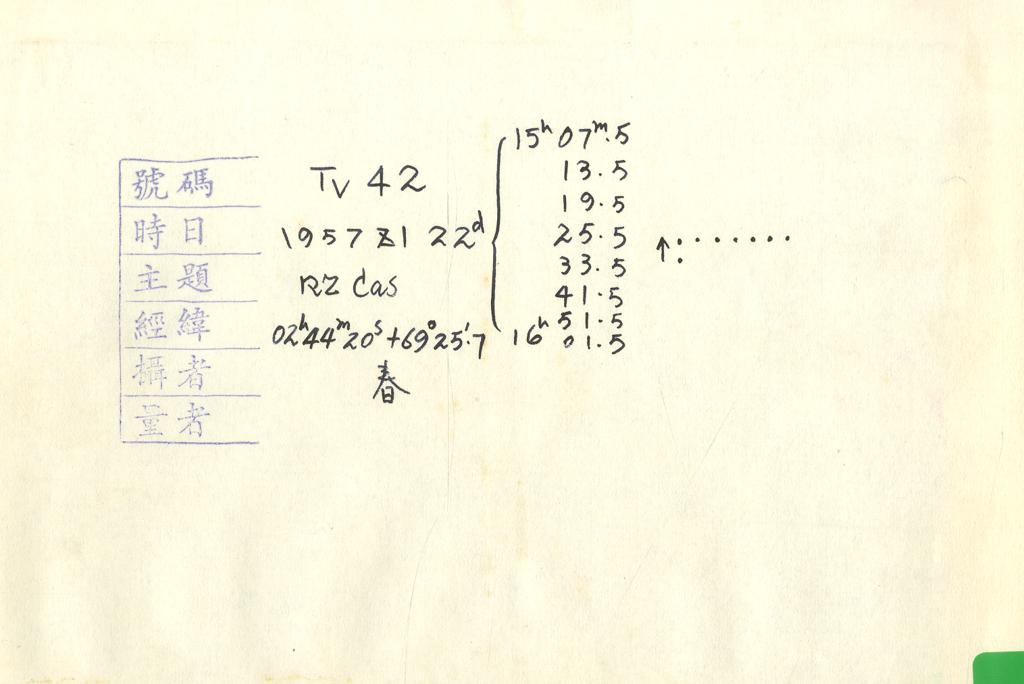 號碼 Tv 42
時日 1957 XI 22ᵈ
主題 RZ Cas
經緯 02ʰ44ᵐ20ˢ+69°25'.7
攝者 春
量者
15ʰ 07ᵐ.5
13.5
19.5
25.5
33.5
41.5
51.5
16ʰ 01.5